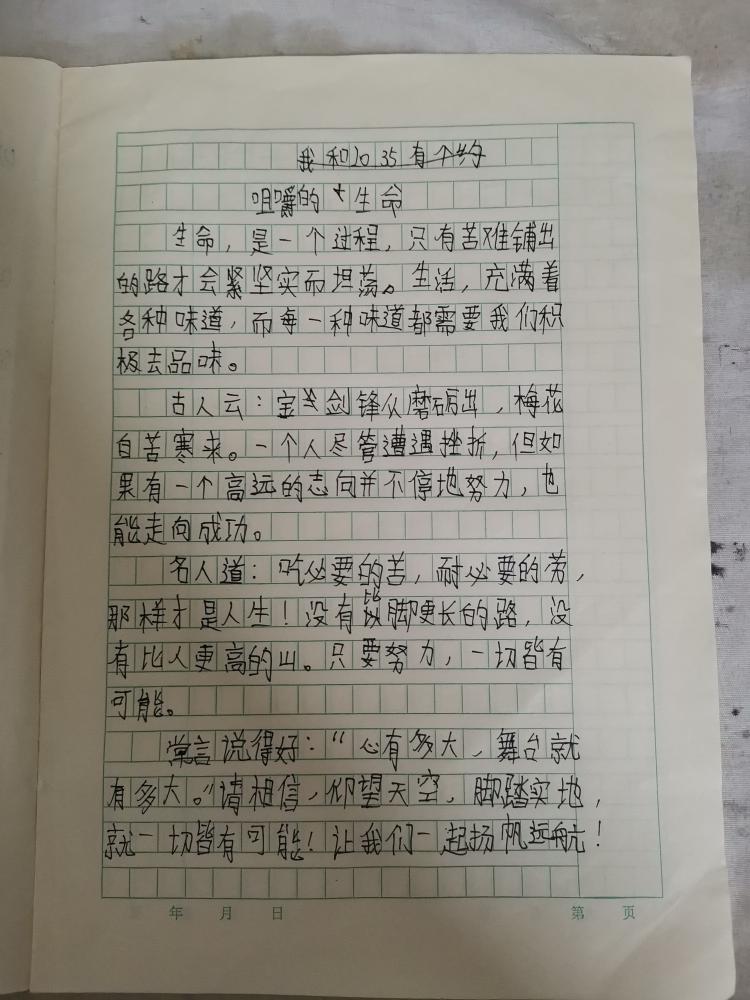 我和2035有个约
咀嚼的生命
生命，是一个过程，只有苦难铺出
的路才会紧坚实而坦荡。生活，充满着
各种味道，而每一种味道都需要我们积
极去品味。
古人云：宝剑锋从磨砺出，梅花
自苦寒来。一个人尽管遭遇挫折，但如
果有一个高远的志向并不停地努力，也
能走向成功。
名人道：吃必要的苦，耐必要的劳，
那样才是人生！没有比脚更长的路，没
有比人更高的山。只要努力，一切皆有
可能。
常言说得好：“心有多大，舞台就
有多大。”请相信，仰望天空，脚踏实地，
就一切皆有可能！让我们一起扬帆远航！
年 月 日 第 页